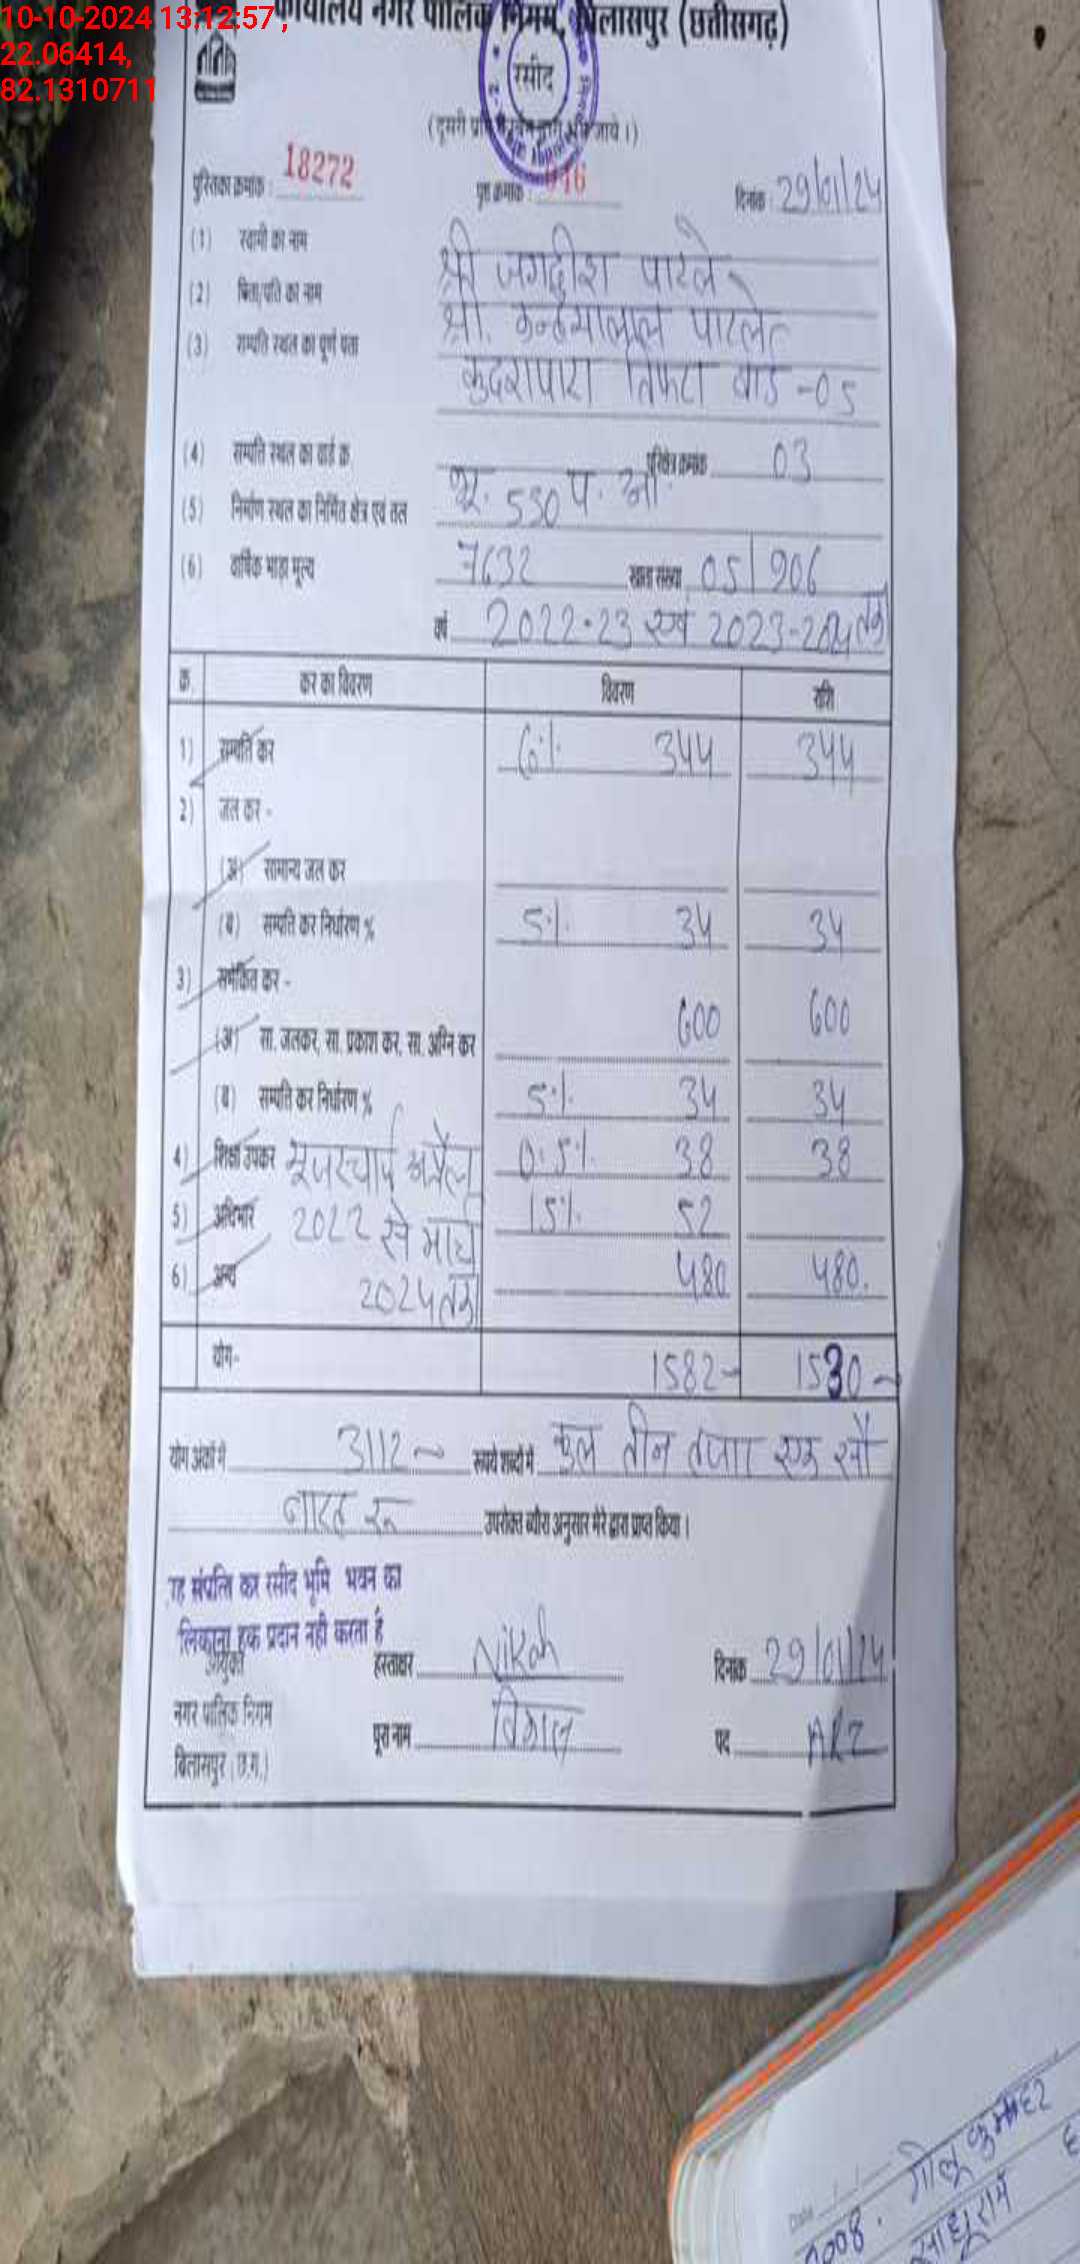 10-10-2024 13:12:57 ,
22.06414,
82.1310711
कार्यालय नगर पालिक निगम, बिलासपुर (छत्तीसगढ़)
रसीद
पुस्तिका क्रमांक : 18272 पृष्ठ क्रमांक : 046 दिनांक 29/01/24
(1) स्वामी का नाम श्री जगदीश पाटले
(2) पिता/पति का नाम श्री. कन्हैयालाल पाटले
(3) सम्पत्ति स्थल का पूर्ण पता कुदरापारा तिफरा वार्ड -05
(4) सम्पत्ति स्थल का वार्ड क्र परिक्षेत्र क्रमांक 03
(5) निर्माण स्थल का निर्मित क्षेत्र एवं तल भू. 550 प. आ.
(6) वार्षिक भाड़ा मूल्य 7632 खाता संख्या 05/906
वर्ष 2022-23 एवं 2023-2024 तक
क्र. कर का विवरण विवरण राशि
1) सम्पत्ति कर 6% 344 344
2) जल कर -
(अ) सामान्य जल कर
(ब) सम्पत्ति कर निर्धारण % 5% 34 34
3) समेकित कर -
(अ) सा. जलकर, सा. प्रकाश कर, सा. अग्नि कर 600 600
(ब) सम्पत्ति कर निर्धारण % 5% 34 34
4) शिक्षा उपकर यूजरचार्ज अप्रैल 0.5% 38 38
5) अधिभार 2022 से मार्च 15% 52
6) अन्य 2024 तक 480 480.
योग- 1582 1530
योग अंकों में 3112 रूपये शब्दों में कुल तीन हजार एक सौ
बारह रू उपरोक्त ब्यौरा अनुसार मेरे द्वारा प्राप्त किया।
यह संपत्ति कर रसीद भूमि भवन का
मालिकाना हक प्रदान नही करता है
आयुक्त हस्ताक्षर दिनांक 29/01/24
नगर पालिक निगम
बिलासपुर (छ.ग.) पूरा नाम विकास पद
Date
गोलू कुमार
साधूराम